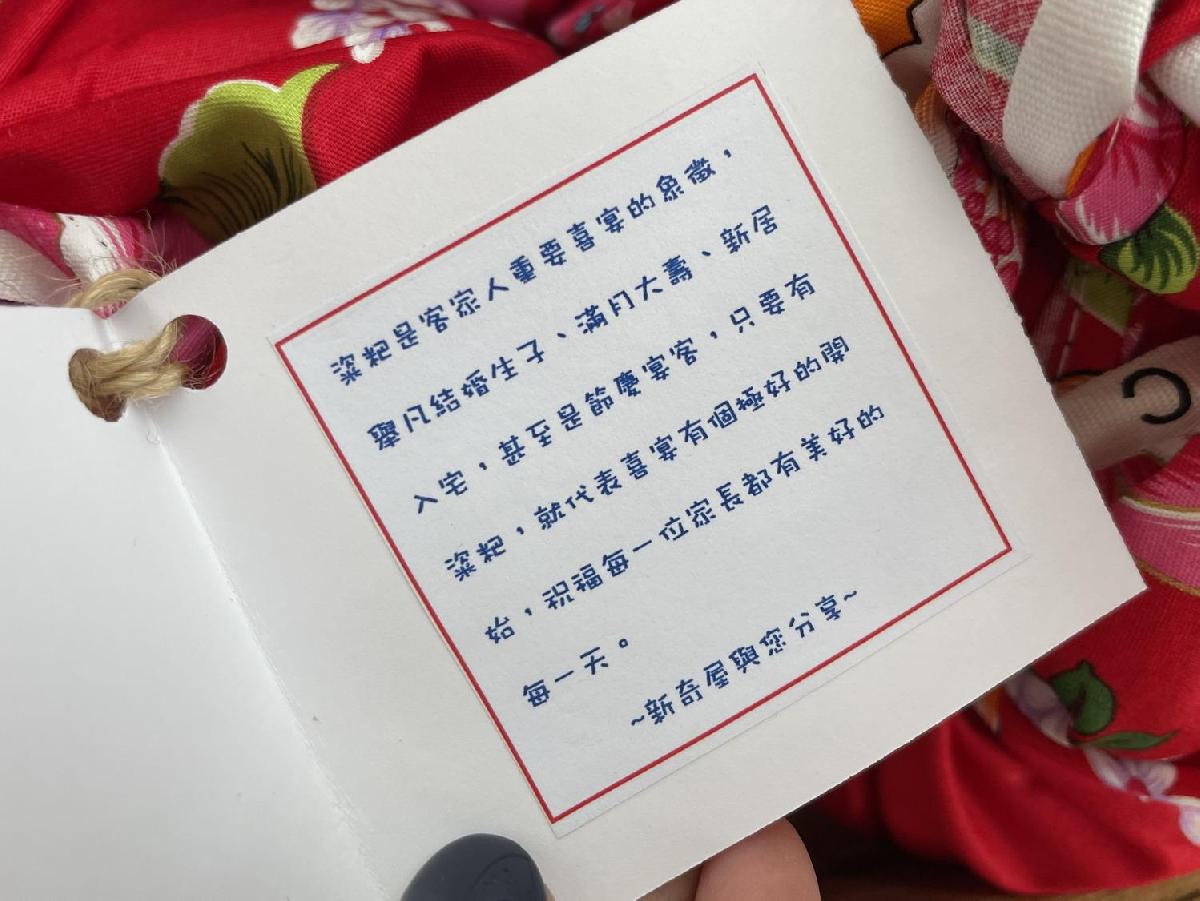 粢粑是客家人重要喜宴的象徵，
舉凡結婚生子、滿月大壽、新居
入宅，甚至是節慶宴客，只要有
粢粑，就代表喜宴有個極好的開
始，祝福每一位家長都有美好的
每一天。
~新奇屋與您分享~
C